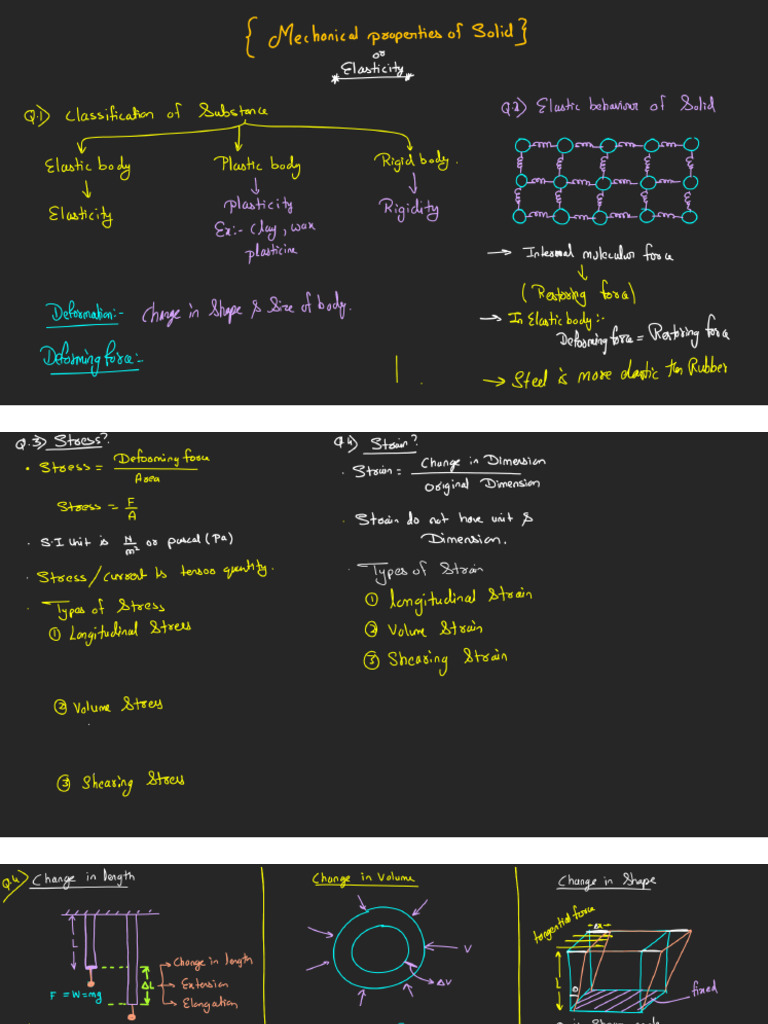 { Mechanical properties of Solid }
or
* Elasticity *
Q.1) Classification of Substance
Elastic body
Plastic body
Rigid body.
Elasticity
Plasticity
Rigidity
Ex:- Clay, wax
plasticine
Deformation:- Change in Shape & Size of body.
Deforming force:-
Q.2) Elastic behaviour of Solid
→ Internal molecular force
(Restoring force)
→ In Elastic body:-
Deforming force = Restoring force
→ Steel is more elastic than Rubber
Q.3) Stress?
• Stress = Deforming force
Area
Stress = F
A
• S.I unit is N/m² or pascal (Pa)
• Stress/current is tensor quantity.
• Types of Stress
① Longitudinal Stress
② Volume Stress
③ Shearing Stress
Q.4) Strain?
• Strain = Change in Dimension
Original Dimension
• Strain do not have unit &
Dimension.
• Types of Strain
① Longitudinal Strain
② Volume Strain
③ Shearing Strain
Q.4) Change in length
L
F = W = mg
ΔL
Change in length
Extension
Elongation
Change in Volume
V
ΔV
Change in Shape
tangential force
L
θ
fixed